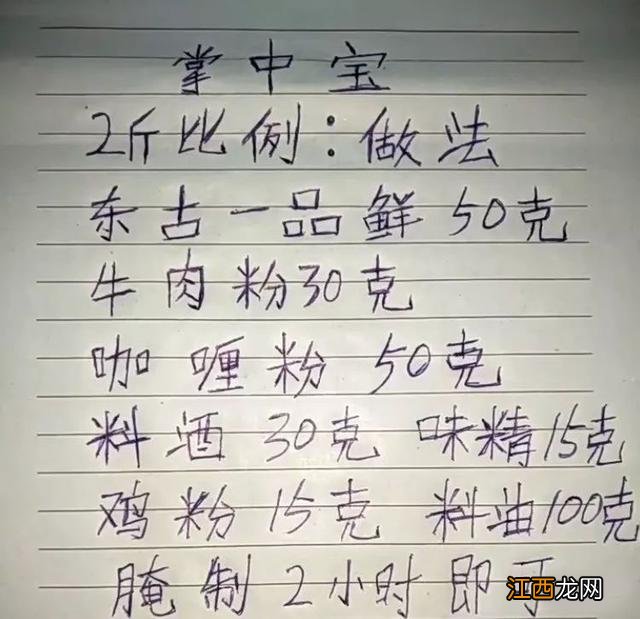 掌中宝
2斤比例：做法
东古一品鲜 50克
牛肉粉30克
咖喱粉 50克
料酒 30克 味精15克
鸡粉 15克 料油100克
腌制2小时即于
江西龙网